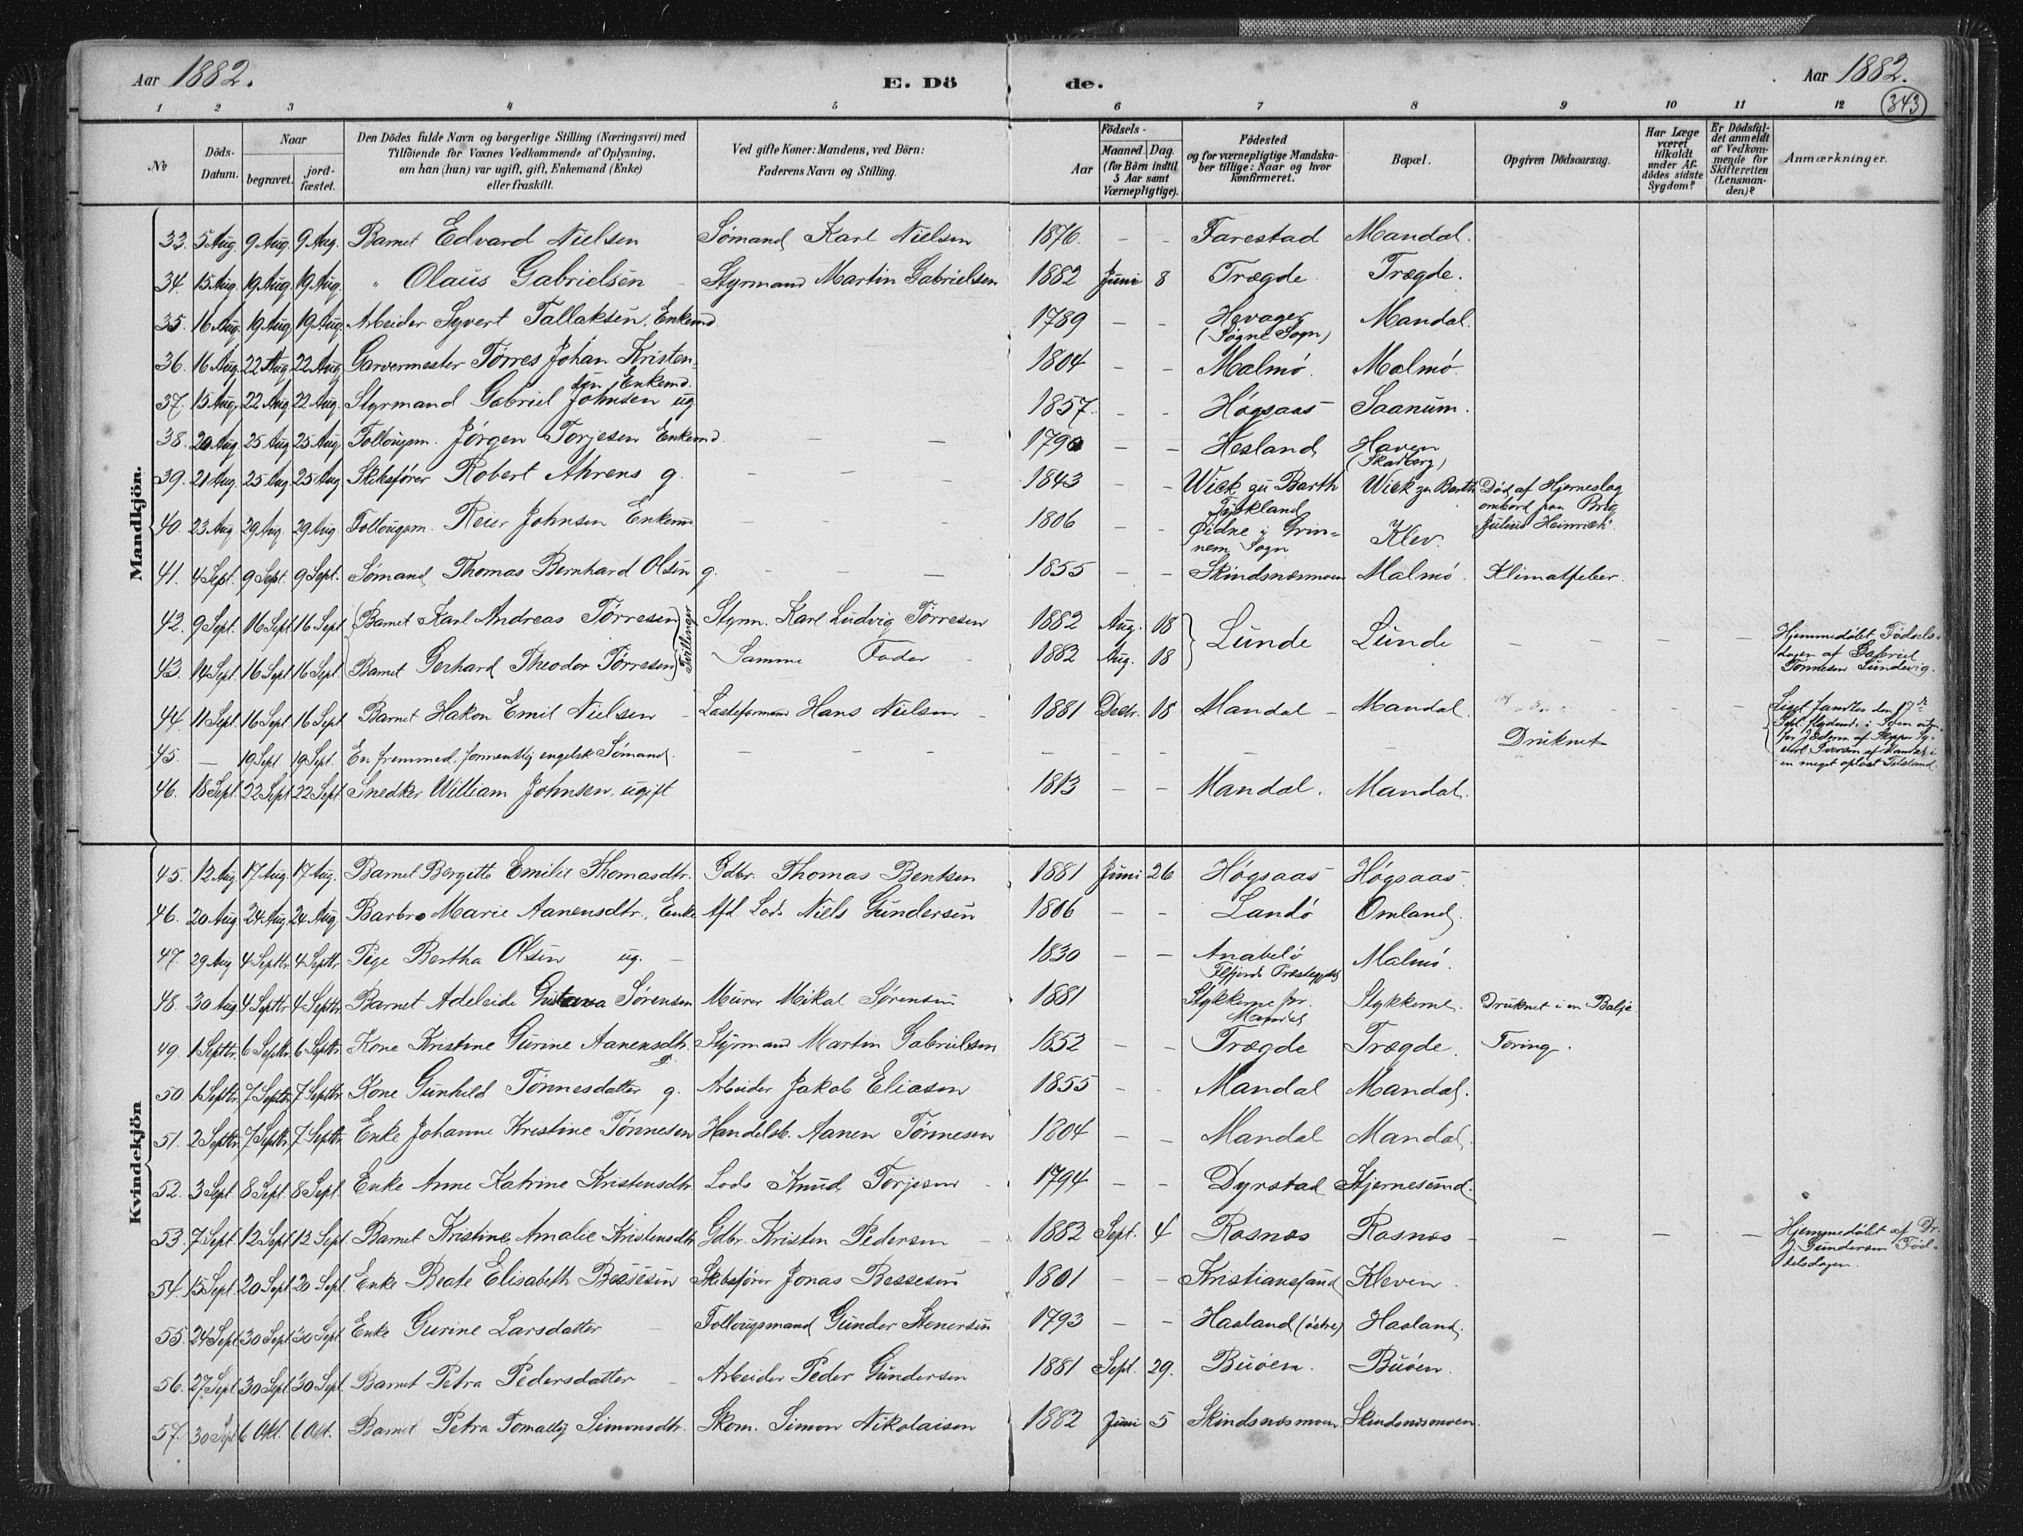 Aar 1882. E. Dö de. Aar 1882.
343
1 2 3 4 5 6 7 8 9 10 11 12
No Döds-Datum. Naar begravet. jord-fæstet. Den Dödes fulde Navn og borgerlige Stilling (Næringsvei) med Tilföiende for Voxnes Vedkommende af Oplysning, om han (hun) var ugift, gift, Enkemand (Enke) eller fraskilt. Ved gifte Koner: Mandens, ved Börn: Faderens Navn og Stilling. Aar Födsels- Maaned. Dag. (for Börn indtil 5 Aar samt Værnepligtige). Födested og for værnepligtige Mandskaber tillige: Naar og hvor konfirmeret. Bopæl. Opgiven Dödsaarsag. Har Læge været tilkaldt under Afdödes sidste Sygdom? Er Dödsfuldet anmeldt af Vedkommende for Skifteretten (Lensmanden)? Anmærkninger.
Mandkjön.
33. 5 Aug. 9 Aug. 9 Aug. Barnet Edvard Nielsen Sømand Karl Nielsen 1876. - - Farestad Mandal.
34. 15 Aug. 19 Aug. 19 Aug. " Olaus Gabrielsen - Styrmand Martin Gabrielsen 1882 Juni 8 Trægde Trægde.
35. 16 Aug. 19 Aug. 19 Aug. Arbeider Syvert Tallaksen, Enkemd. 1789 - - Hevager (Søgne Sogn) Mandal.
36. 16 Aug. 22 Aug. 22 Aug. Garvermester Tørres Johan Kristensen Enkemd. 1804 - - Malmø. Malmø.
37. 15 Aug. 22 Aug. 22 Aug. Styrmand Gabriel Johnsen ug 1857. - - Høgsaas Saanum.
38. 20 Aug. 25 Aug. 25 Aug. Follougsm. Jørgen Torjesen Enkemd. - - 1790 - - Hesland Haven (Skadberg)
39. 21 Aug. 25 Aug. 25 Aug. Skibsfører Robert Ahrens g. - - - 1843 - - Wiek zu Barth Tyskland Wiek zu Barth Død af Hjerneslag ombord paa Brig Julius Heinrich
40 23 Aug. 29 Aug. 29 Aug. Follougsm. Reier Johnsen Enkemd - - - 1806 - - Øidne i Grinnem Sogn Klev.
41. 4 Sept. 9 Sept. 9 Sept. Sømand Thomas Bernhard Olsen g. - - - 1855 - - Skindsnæsmoen Malmø. Klimatfeber.
42. 9 Sept. 16 Sept 16 Sept. Barnet Karl Andreas Tørresen Styrm. Karl Ludvig Tørresen 1882 Aug. 18 Lunde Lunde
Tvillinger
43. 14 Sept. 16 Sept. 16 Sept. Barnet Gerhard Theodor Tørresen Samme Fader - 1882 Aug. 18 - - - Hjemmedøbt Fødselsdagen af Gabriel Tønnesen Lundevig.
44. 11 Sept. 16 Sept. 16 Sept. Barnet Hakon Emil Nielsen - Lasteformand Hans Nielsen - 1881 Decbr. 18 Mandal - Mandal.
45. - 19 Sept. 19 Sept. En fremmed, formentlig engelsk Sømand. - - - - - - - - Druknet Liget fandtes den 17de Sept. flydende i Søen af Skipper en meget opløst Tilstand.
46. 18 Sept. 22 Sept 22 Sept Snedker William Johnsen, ugift 1813 - - Mandal. Mandal.
Kvindekjön
45. 12 Aug. 17 Aug. 17 Aug. Barnet Bergitte Emilie Thomasdtr. Gdbr. Thomas Bentsen 1881 Juni 26 Høgsaas Høgsaas.
46. 20 Aug. 24 Aug. 24 Aug. Barbro Marie Aanensdtr., Enke Afd. Lods Niels Gundersen 1806 - - Landø Omland.
47. 29 Aug 4 Septbr. 4 Septbr. Pige Bertha Olsen ug. - 1830 - - Anabelø Malmø.
48. 30 Aug. 4 Septbr. 4 Septbr. Barnet Adeleide Gustava Sørensen Murer Mikal Sørensen 1881 Stykkerne for Mandal Stykkerne. Druknet i en Balje
49. 1 Septbr. 6 Septbr. 6 Septbr. Kone Kristine Gurine Aanensdtr. g. Styrmand Martin Gabrielsen 1852 - - Trægde Trægde. Tæring.
50. 1 Septbr. 7 Septbr. 7 Septbr. Kone Gunhild Tønnesdatter g. Arbeider Jakob Eliasen 1855 - - Mandal Mandal.
51. 2 Septbr. 7 Septbr. 7 Septbr. Enke Johanne Kristine Tønnesen Handelsb. Aanen Tønnesen 1804 - - Mandal Mandal.
52. 3 Sept. 8 Sept. 8 Sept. Enke Anne Katrine Kristensdtr. Lods Knud Torjesen - 1794 - - Dyrstad Stjernesund.
53. 7 Sept. 12 Sept 12 Sept. Barnet Kristine Amalie Kristensdtr. Gdbr. Kristen Pedersen - 1882 Sept. 4 Rosnæs Rosnæs - - - - Hjemmedøbt af Dr. J. Gundersen Fødselsdagen.
54. 15 Sept. 20 Sept. 20 Sept. Enke Beate Elisabeth Bessesen Skibsfører Jonas Bessesen 1801 - - Kristianssand Kleven.
55. 24 Sept. 30 Sept 30 Sept Enke Gurine Larsdatter - Follougsmand Gunder Stenersen 1793 - - Haaland (østre) Haaland.
56. 27 Sept. 30 Sept 30 Sept. Barnet Petra Pedersdatter - Arbeider Peder Gundersen 1881 Sept. 29. Buøen. Buøen.
57. 30 Sept 6 Okt. 6 Okt. Barnet Petra Tomally Simonsdtr. Skom. Simon Nikolaisen 1882 Juni 5 Skindsnæsmoen Skindsnæsmoen.